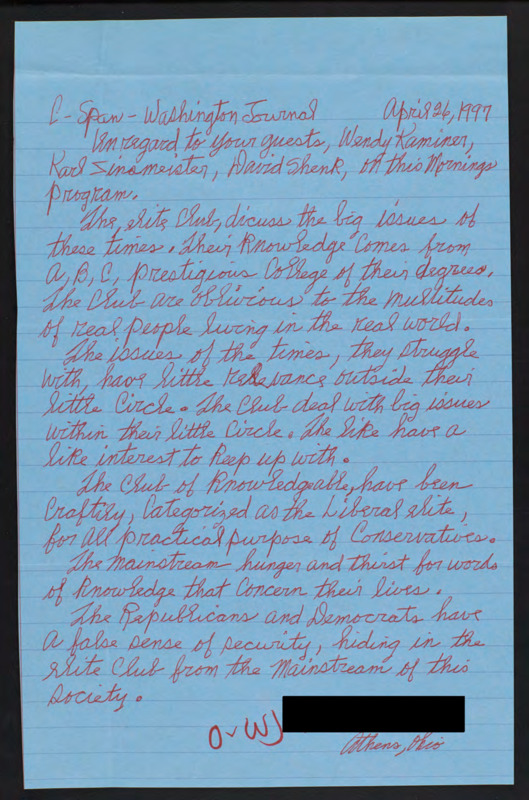 C-Span-Washington Journal April 26, 1997
In regard to your guests, Wendy Kaminer,
Karl Zinsmeister, David Shenk, on this Mornings
program.
The, elite Club, dicuss the big issues of
these times. Their Knowledge Comes from
A, B, C, prestigious College of their degrees.
The Club are oblivious to the multitudes
of real people living in the real world.
The issues of the times, they struggle
with, have little relevance outside their
little Circle. The Club deal with big issues
within their little Circle. The like have a
like interest to keep up with.
The Club of Knowledgeable, have been
Craftily, Categorized as the Liberal elite,
for all practical purpose of Conservatives.
The Mainstream hunger and thirst for words
of Knowledge that Concern their lives.
The Republicans and Democrats have
a false sense of security, hiding in the
elite Club from the Mainstream of this
society.
O-WJ
Athens, Ohio